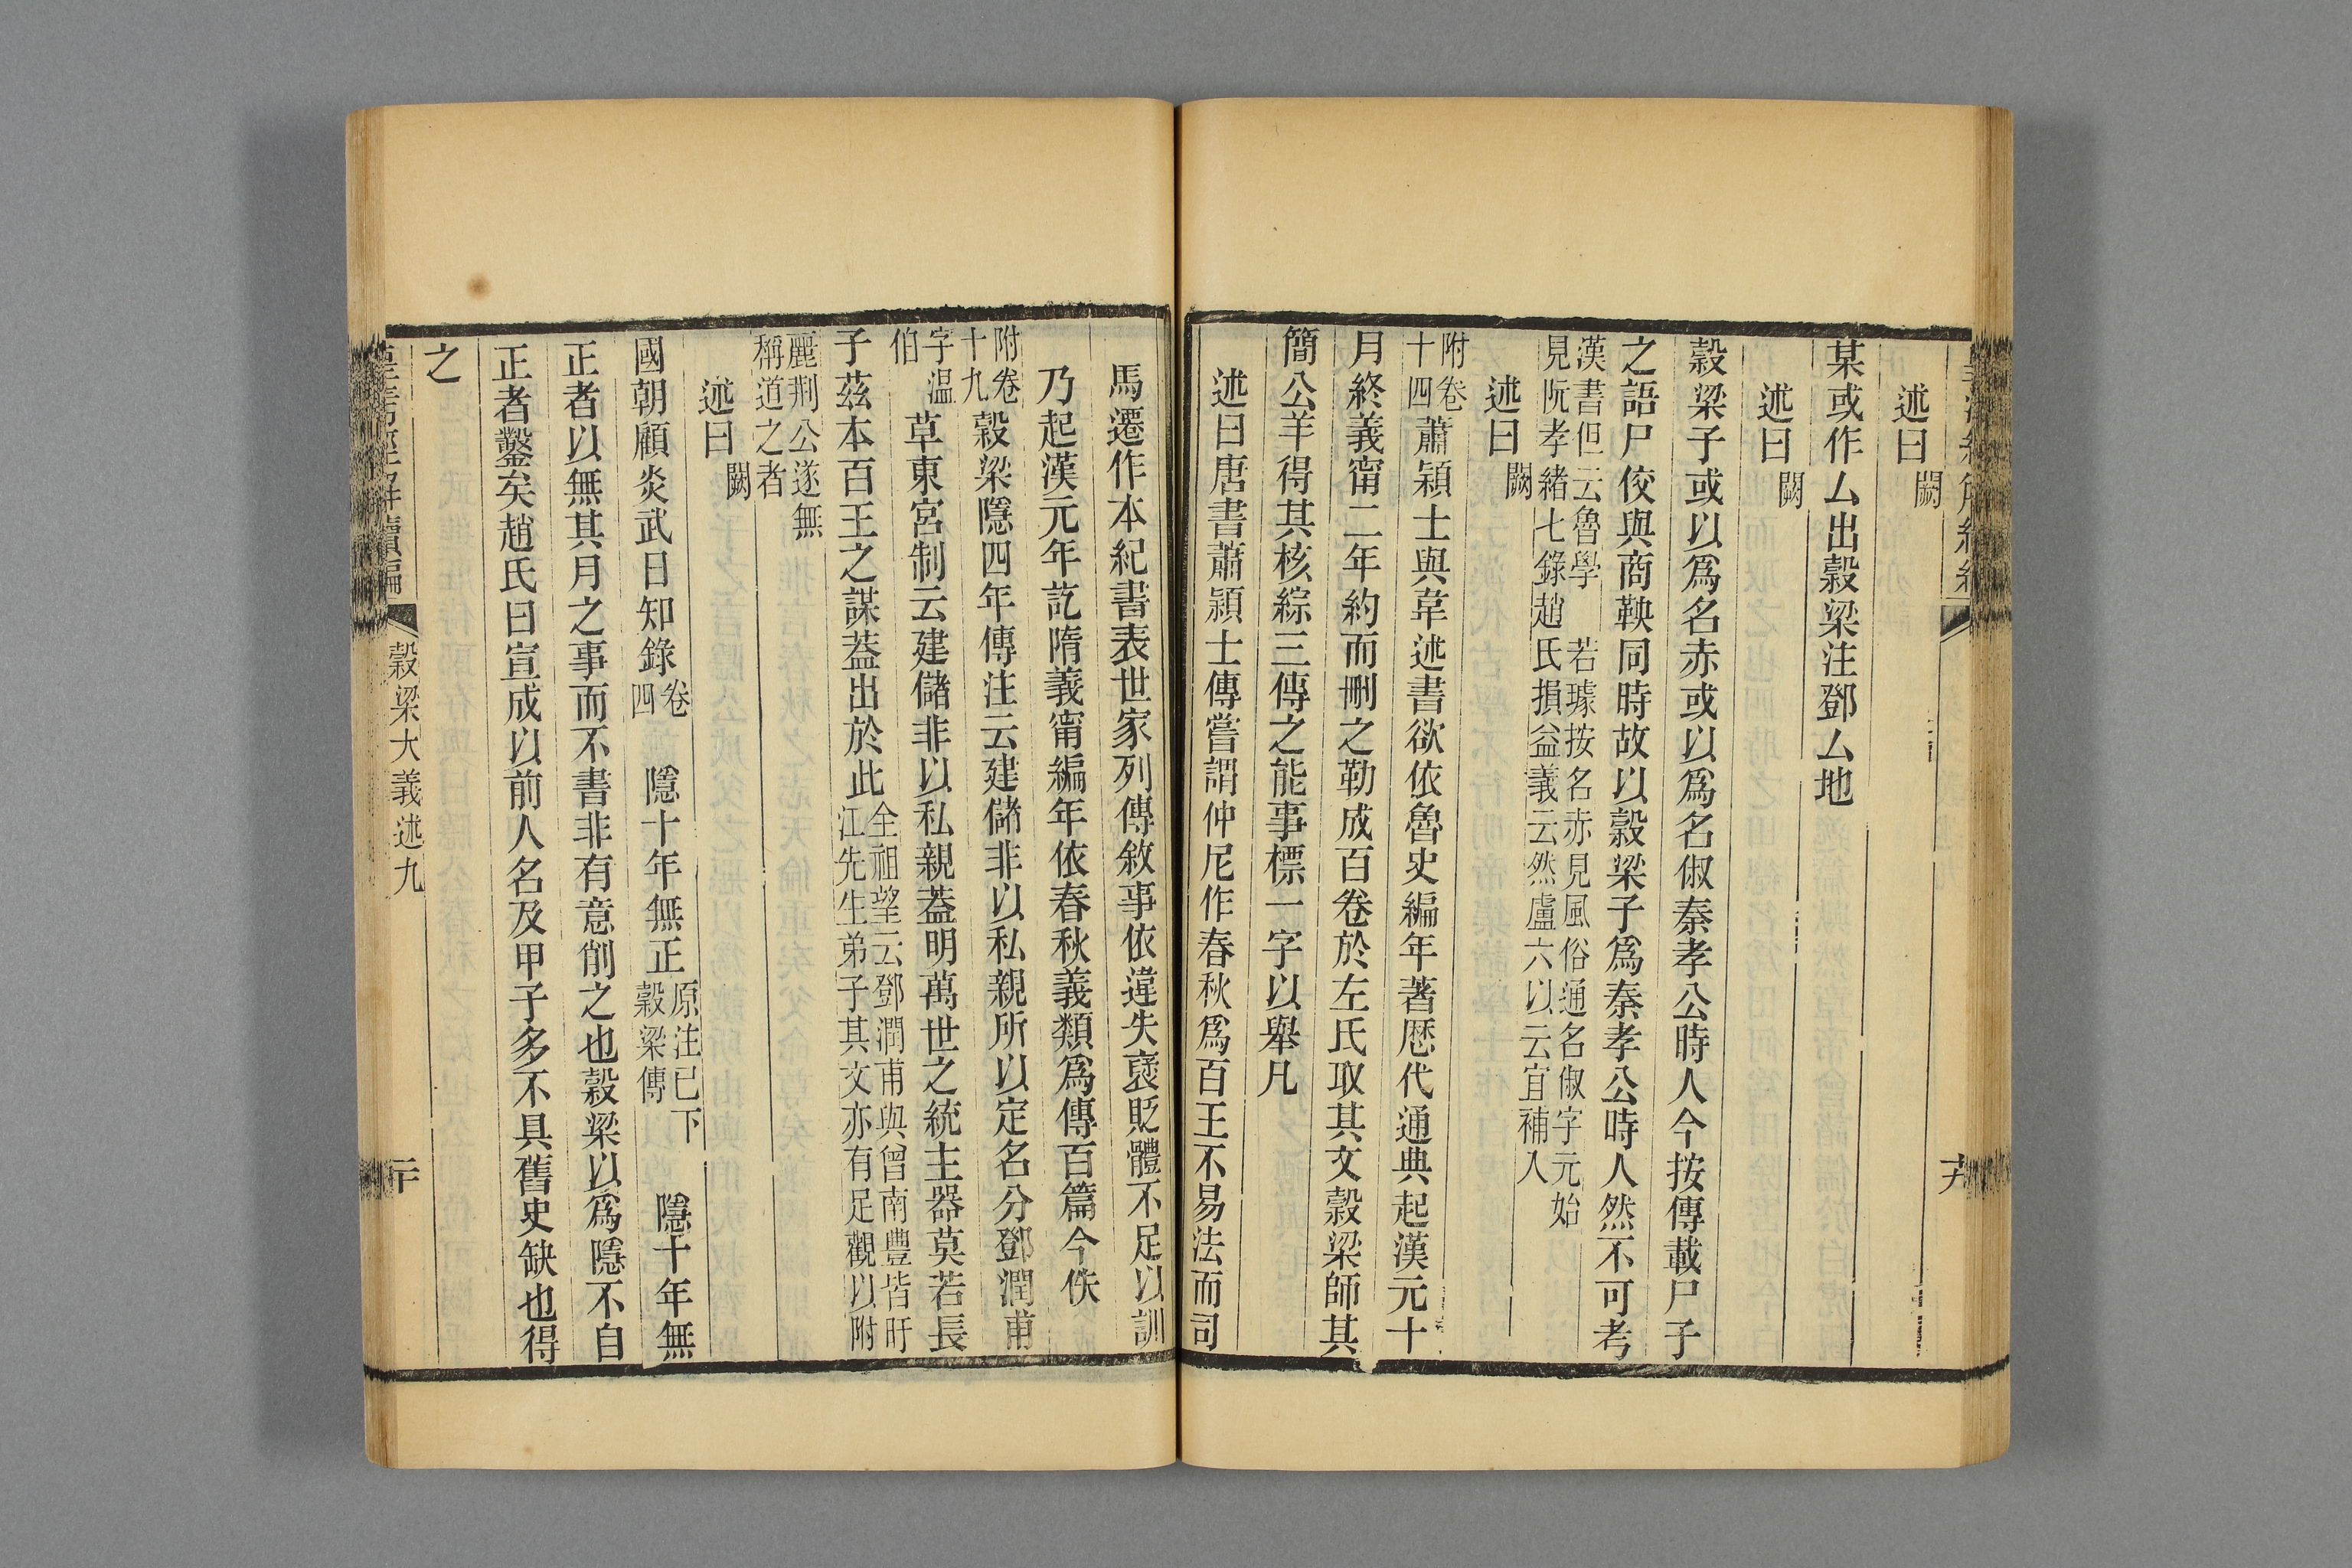 述曰闕
某或作厶出穀梁注鄧厶地
述曰闕
穀梁子或以爲名赤或以爲名俶秦孝公時人今按傳載尸子
之語尸佼與商鞅同時故以穀梁子爲秦孝公時人然不可考
漢書但云魯學 若璩按名赤見風俗通名俶字元始
見阮孝緒七錄趙氏損益義云然盧六以云宜補入
述曰闕
附卷
十四
蕭穎士與韋述書欲依魯史編年著歷代通典起漢元十
月終義甯二年約而刪之勒成百卷於左氏取其文穀梁師其
簡公羊得其核綜三傳之能事標一字以舉凡
述曰唐書蕭穎士傳嘗謂仲尼作春秋爲百王不易法而司
馬遷作本紀書表世家列傳敘事依違失褒貶體不足以訓
乃起漢元年訖隋義甯編年依春秋義類爲傳百篇今佚
附卷
十九
穀梁隱四年傳注云建儲非以私親所以定名分鄧潤甫
字溫
伯
草東宮制云建儲非以私親蓋明萬世之統主器莫若長
子茲本百王之謀蓋出於此
全祖望云鄧潤甫與曾南豐皆盱
江先生弟子其文亦有足觀以附
麗荆公遂無
稱道之者
述曰闕
國朝顧炎武日知錄
卷
四
隱十年無正
原注已下
穀梁傳
隱十年無
正者以無其月之事而不書非有意削之也穀梁以爲隱不自
正者鑿矣趙氏曰宣成以前人名及甲子多不具舊史缺也得
之
穀梁大義述九